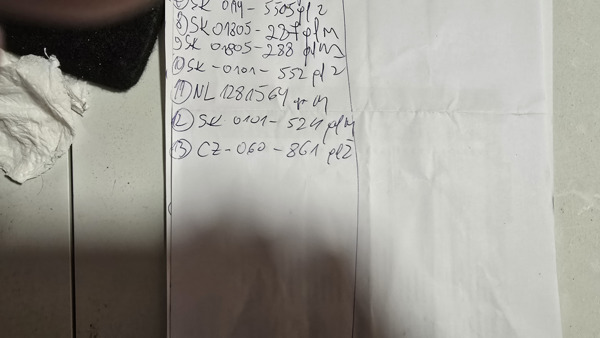 SK 0114-5505 pl Ž
8) SK 01805-227 pl M
9 SK 01805-288 pl M
10) SK-0101-552 pl Ž
11 NL 1281564 M
12 SK 0101-524 pl M
13 CZ-060-861 pl Ž